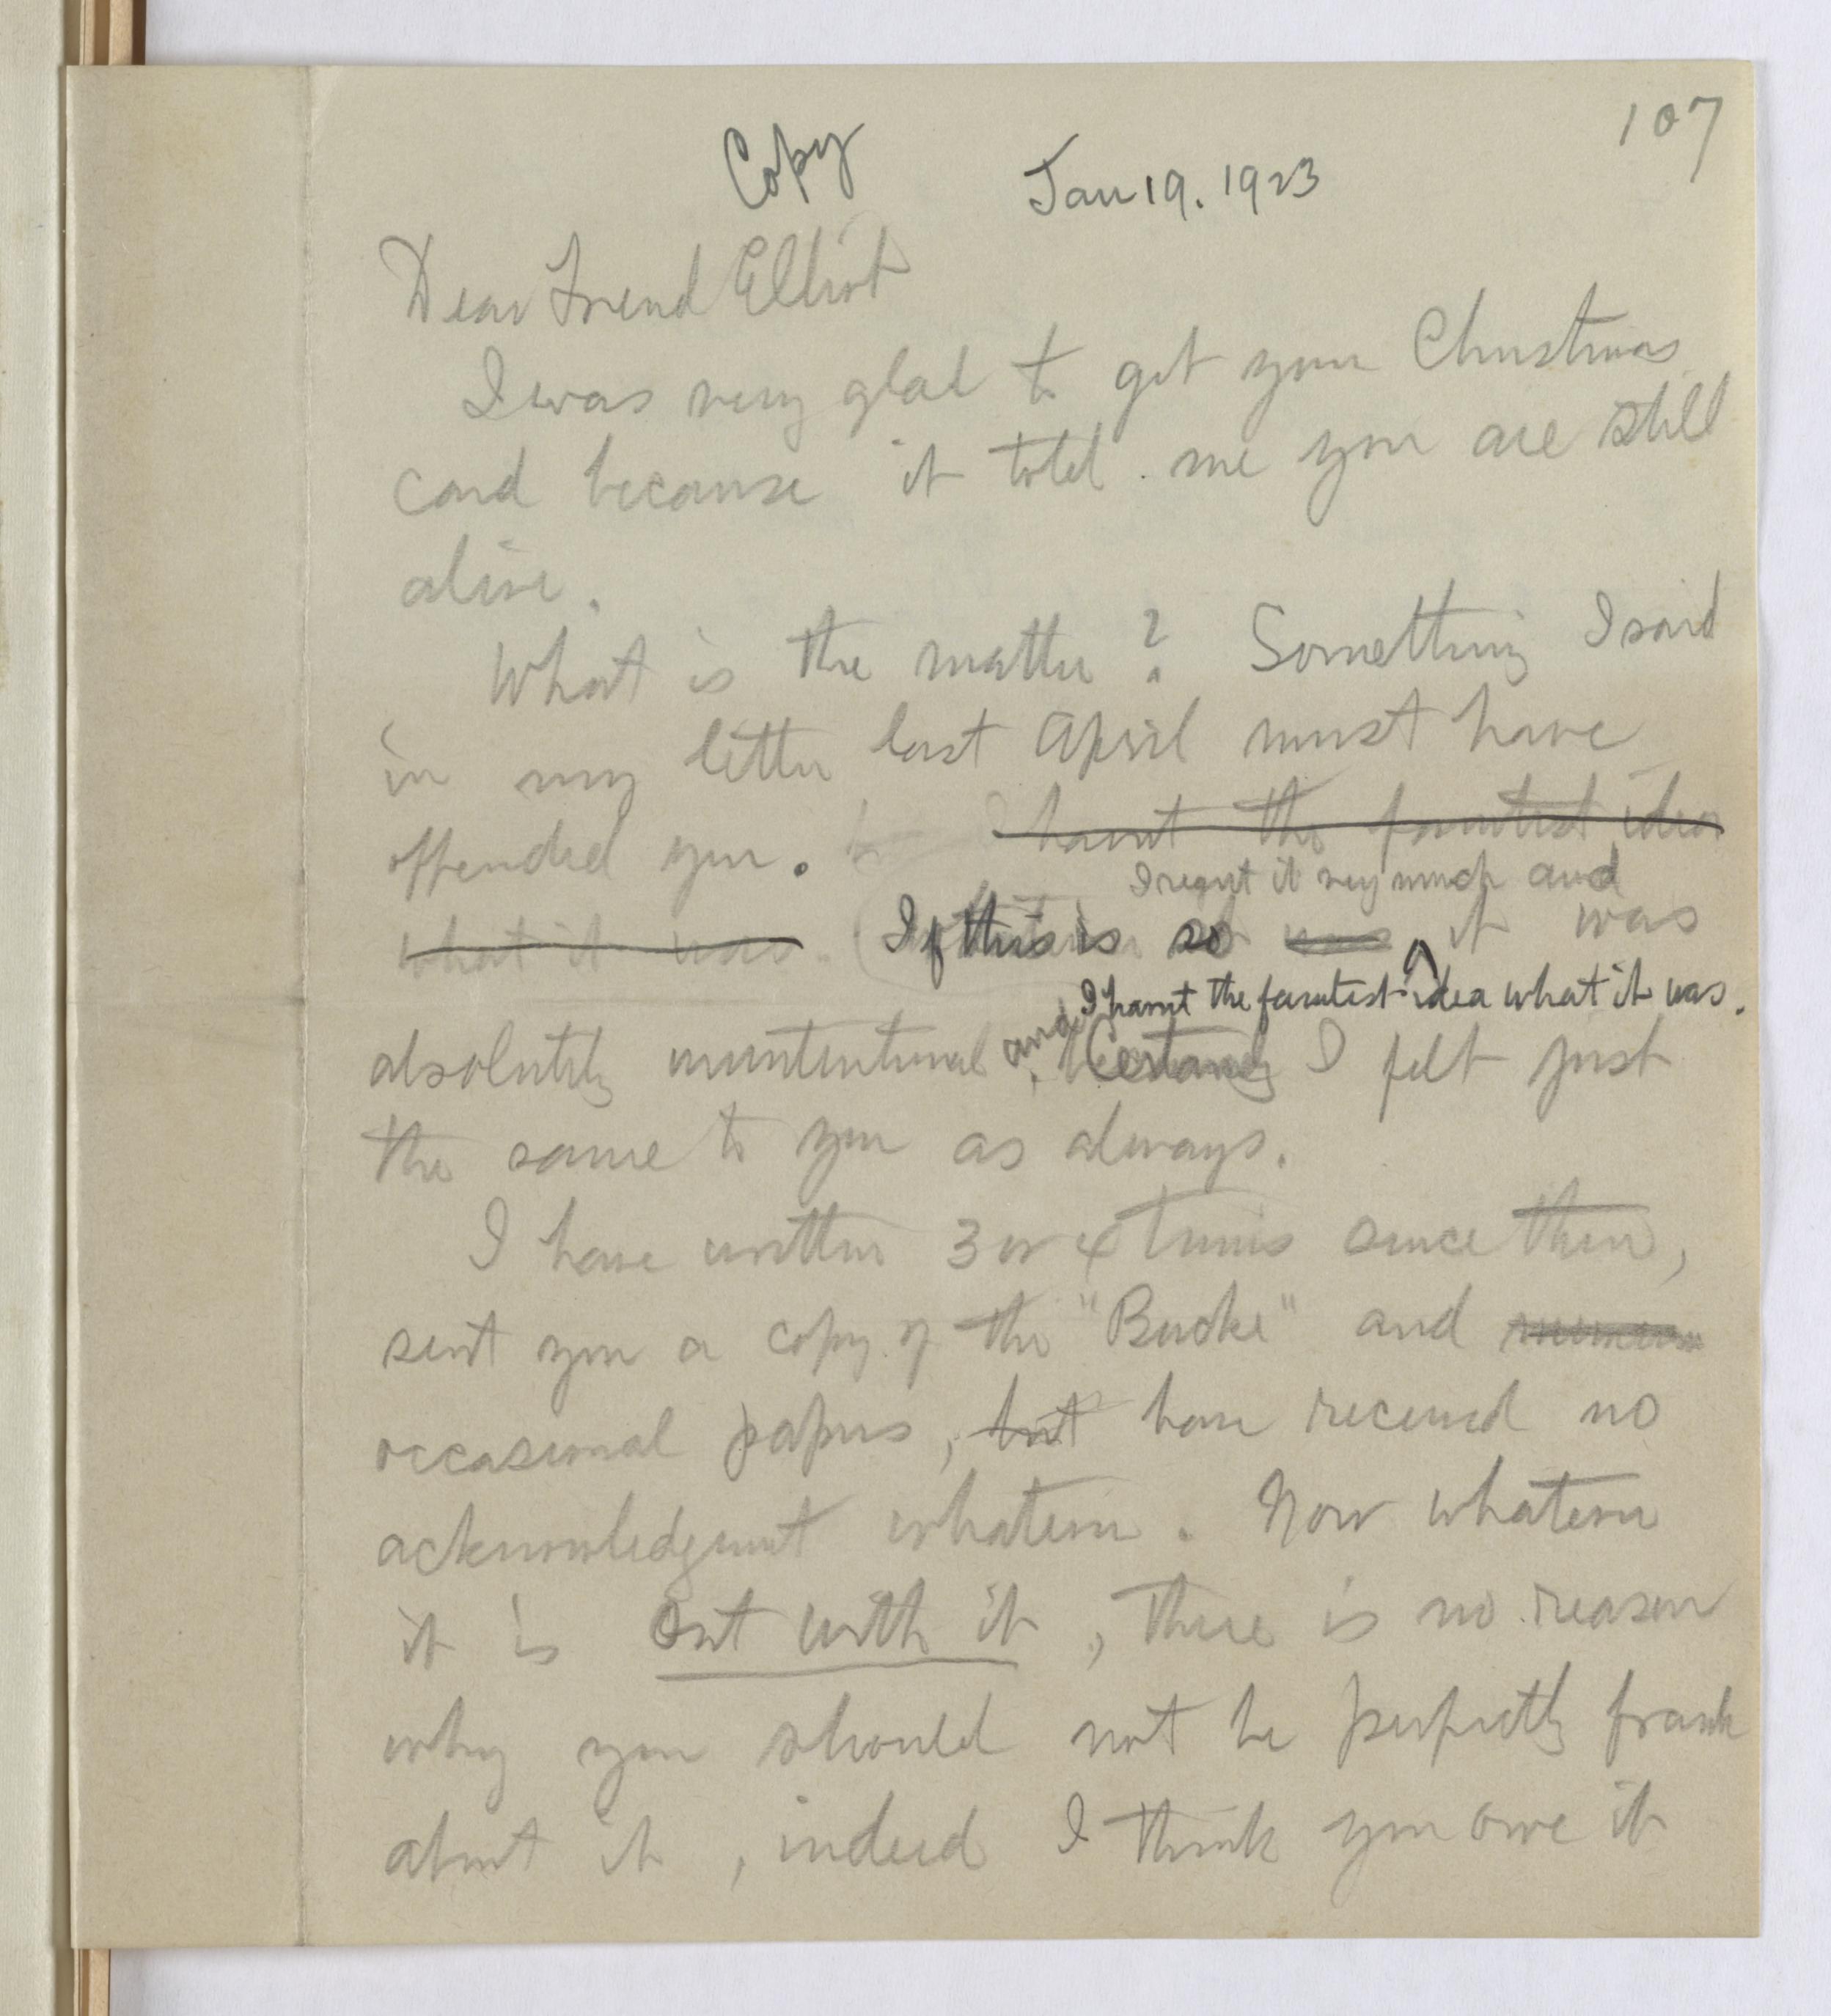 107
Copy
Jan 19. 1923
Dear Friend Elliot
I was very glad to get your Christmas
card because it told me you are still
alive.
What is the matter? Something I said
in my letter last April must have
offended you. havnt the faintest idea
I regret it very much and
what it was. If this is so was it was
I havnt the faintest idea what it was.
absolutely unintentional and Certainly I felt just
the same to you as always.
I have written 3 or 4 times since then,
sent you a copy of the "Bucke" and
occasional papers, but have received no
acknowledgment whatever. Now whatever
it is out with it, there is no reason
why you should not be perfectly frank
about it, indeed I think you owe it